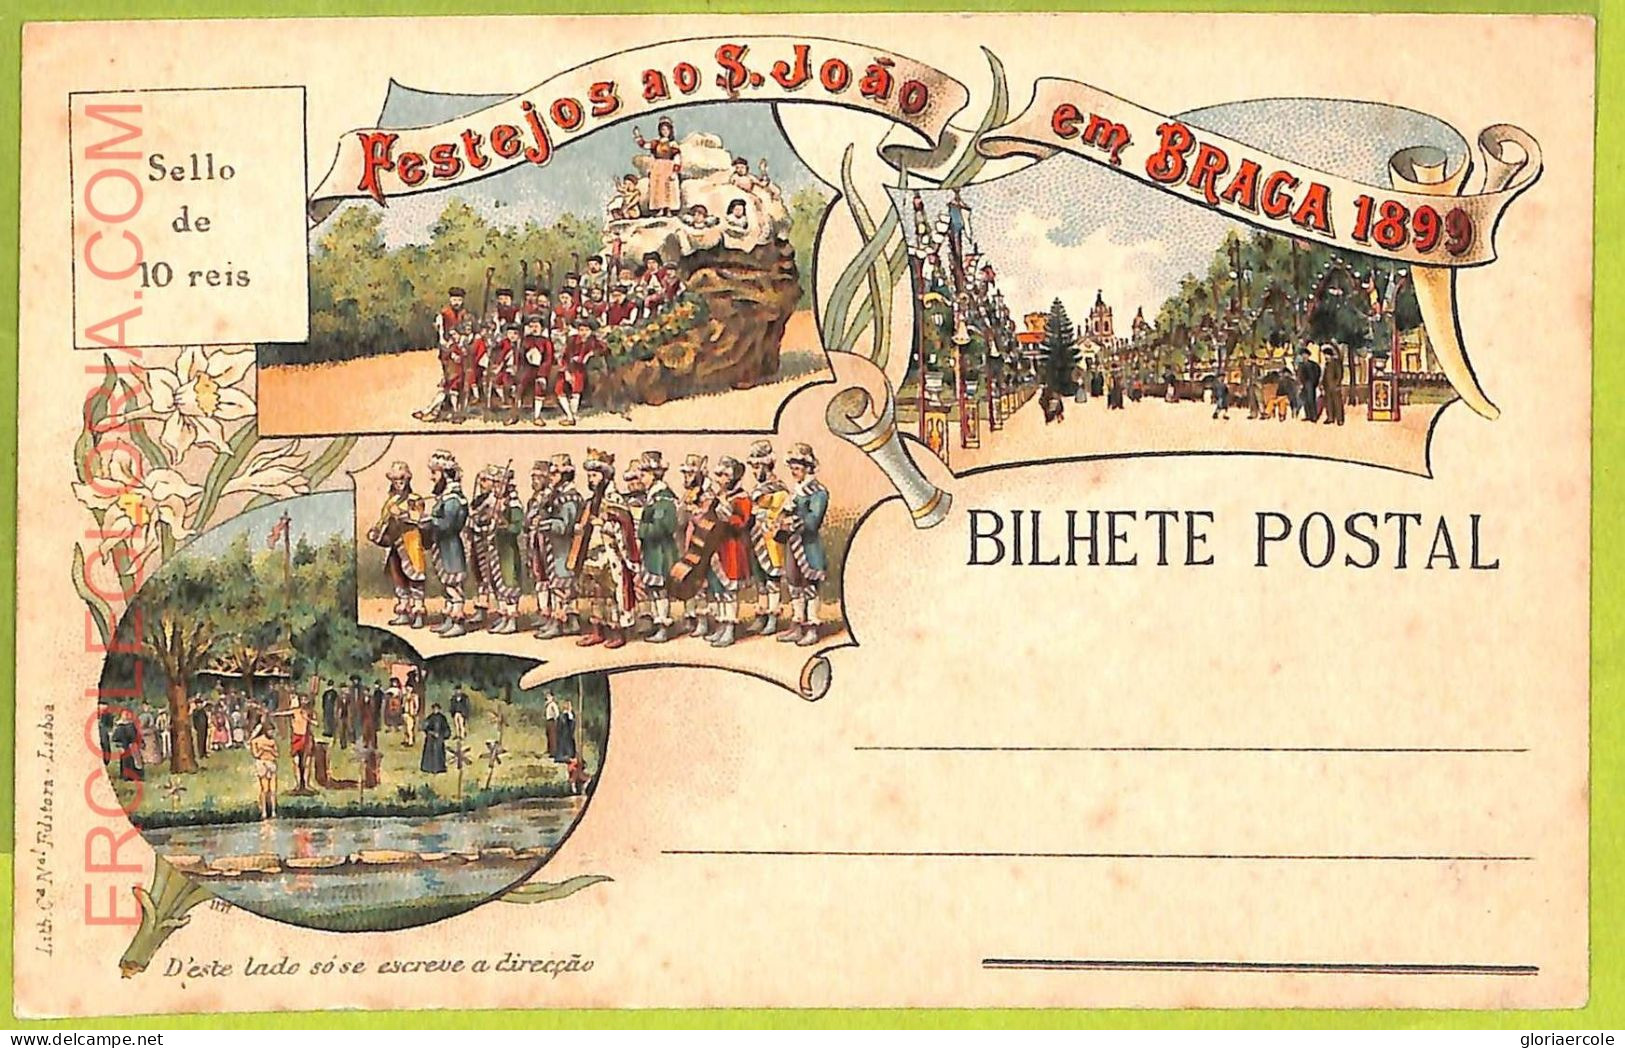 Festejos ao S. João em BRAGA 1899
Sello
de
10 reis
BILHETE POSTAL
Lith. Cª Nªl Editora - Lisboa
D'este lado só se escreve a direcção
ERCOLEGLORIA.COM
gloriaercole